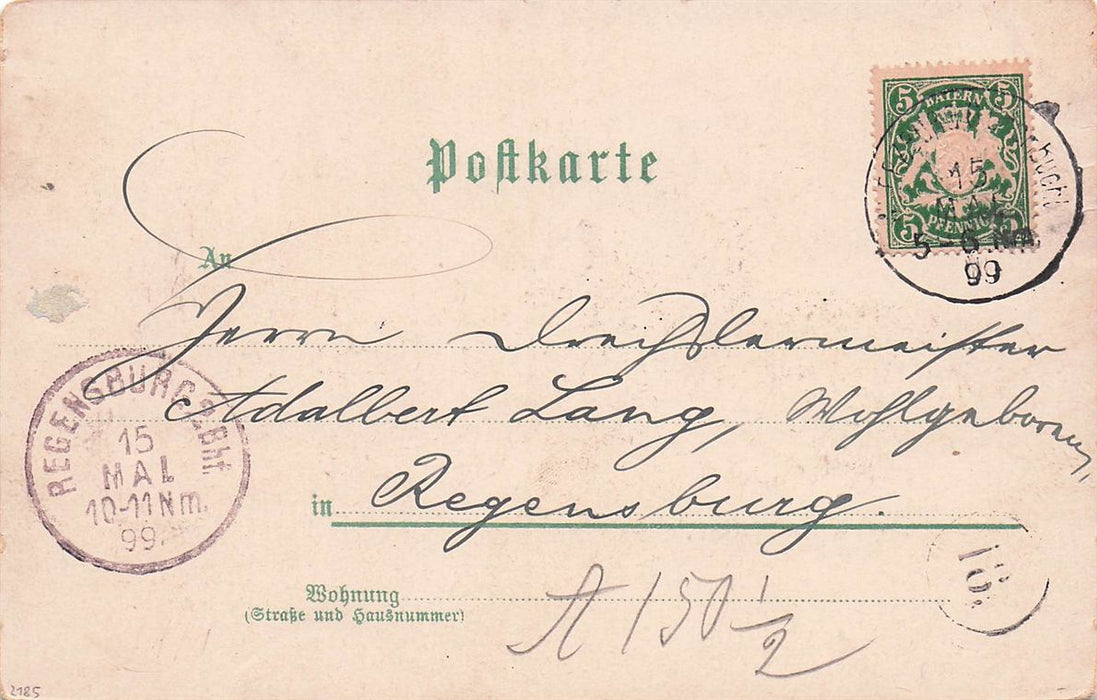 Postkarte
5 BAYERN 5
5 PFENNIG 5
15
MAI
5-6 Nm.
99
An
Herrn Drechslermeister
Adalbert Lang, Wohlgeboren,
in Regensburg.
REGENSBURG 2 Bhf
15
MAI
10-11 Nm.
99.
Wohnung
(Straße und Hausnummer)
A 150 1/2
2185